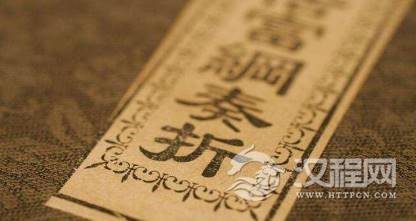 宫綱奏折
汉程网
WWW.HTTPCN.COM